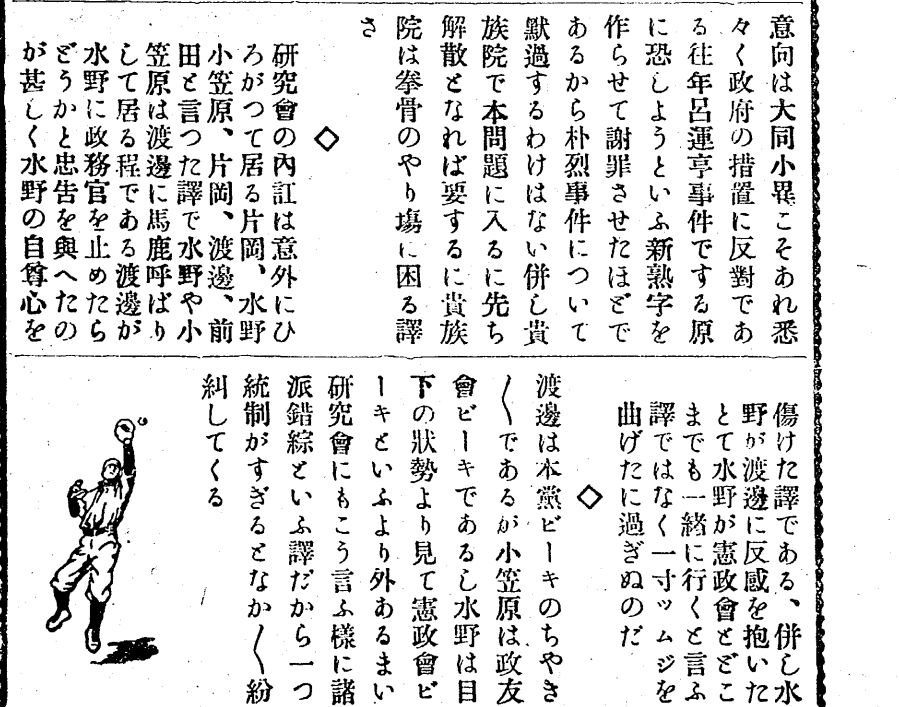 意向は大同小異こそあれ悉
々く政府の措置に反對であ
る往年呂運亨事件でする原
に恐しようといふ新熟字を
作らせて謝罪させたほどで
あるから朴烈事件について
默過するわけはない併し貴
族院で本問題に入るに先ち
解散となれば要するに貴族
院は拳骨のやり塲に困る譯
さ
◇
研究會の內訌は意外にひ
ろがつて居る片岡、水野
小笠原、片岡、渡邊、前
田と言つた譯で水野や小
笠原は渡邊に馬鹿呼ばり
して居る程である渡邊が
水野に政務官を止めたら
どうかと忠吿を與へたの
が甚しく水野の自尊心を
傷けた譯である、併し水
野が渡邊に反感を抱いた
とて水野が憲政會とどこ
までも一緒に行くと言ふ
譯ではなく一寸ツムジを
曲げたに過ぎぬのだ
◇
渡邊は本黨ビーキのちやき
〱であるが小笠原は政友
會ビーキであるし水野は目
下の狀勢より見て憲政會ビ
ーキといふより外あるまい
研究會にもこう言ふ樣に諸
派錯綜といふ譯だから一つ
統制がすぎるとなか〱紛
糾してくる